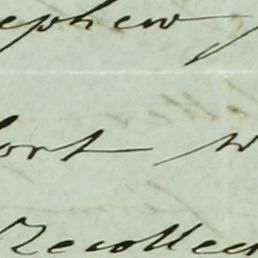 ephew
ort w
Recollec